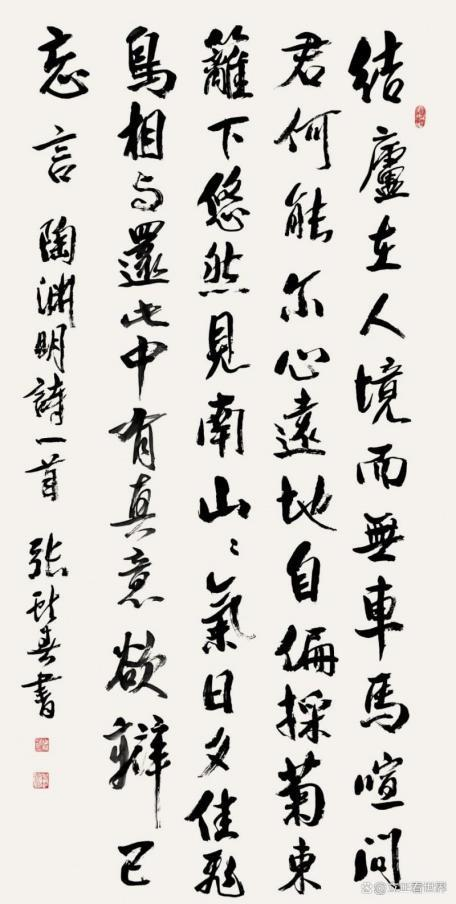 結廬在人境而無車馬喧問
君何能尔心遠地自偏採菊東
籬下悠然見南山〻氣日夕佳飛
鳥相与還此中有真意欲辯已
忘言 陶淵明詩一首 張春書
看世界